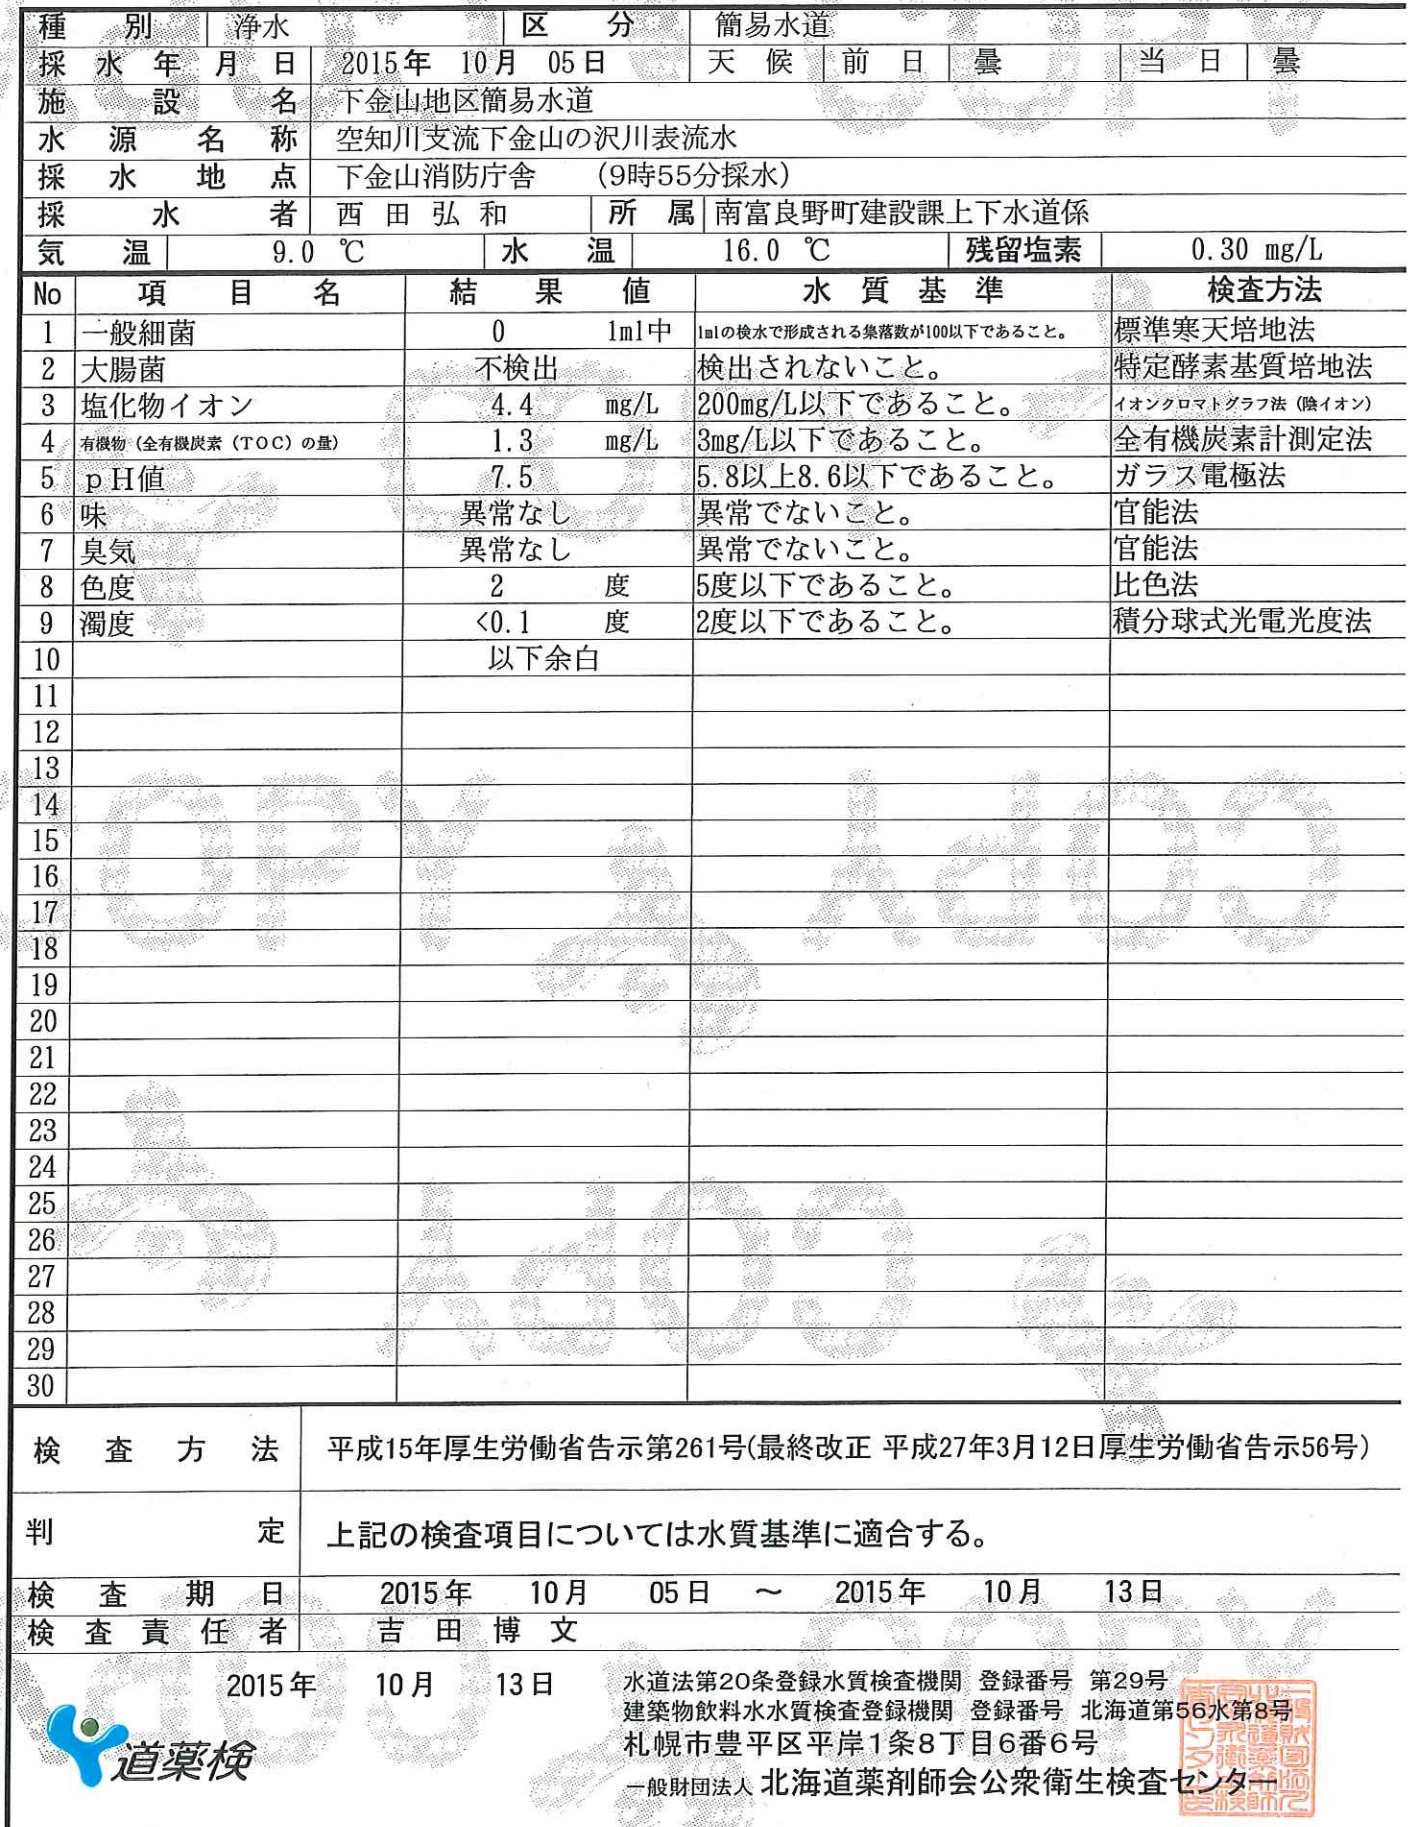 種別 浄水 区分 簡易水道
採水年月日 2015年 10月 05日 天候 前日 曇 当日 曇
施設名 下金山地区簡易水道
水源名称 空知川支流下金山の沢川表流水
採水地点 下金山消防庁舎 (9時55分採水)
採水者 西田弘和 所属 南富良野町建設課上下水道係
気温 9.0 ℃ 水温 16.0 ℃ 残留塩素 0.30 mg/L
No 項目名 結果値 水質基準 検査方法
1 一般細菌 0 1ml中 1mlの検水で形成される集落数が100以下であること。 標準寒天培地法
2 大腸菌 不検出 検出されないこと。 特定酵素基質培地法
3 塩化物イオン 4.4 mg/L 200mg/L以下であること。 イオンクロマトグラフ法(陰イオン)
4 有機物(全有機炭素(TOC)の量) 1.3 mg/L 3mg/L以下であること。 全有機炭素計測定法
5 pH値 7.5 5.8以上8.6以下であること。 ガラス電極法
6 味 異常なし 異常でないこと。 官能法
7 臭気 異常なし 異常でないこと。 官能法
8 色度 2 度 5度以下であること。 比色法
9 濁度 <0.1 度 2度以下であること。 積分球式光電光度法
10 以下余白
11
12
13
14
15
16
17
18
19
20
21
22
23
24
25
26
27
28
29
30
検査方法 平成15年厚生労働省告示第261号(最終改正 平成27年3月12日厚生労働省告示56号)
判定 上記の検査項目については水質基準に適合する。
検査期日 2015年 10月 05日 ～ 2015年 10月 13日
検査責任者 吉田博文
2015年 10月 13日
水道法第20条登録水質検査機関 登録番号 第29号
建築物飲料水水質検査登録機関 登録番号 北海道第56水第8号
札幌市豊平区平岸1条8丁目6番6号
一般財団法人 北海道薬剤師会公衆衛生検査センター
道薬検
COPY
COPY
COPY
COPY
COPY
COPY